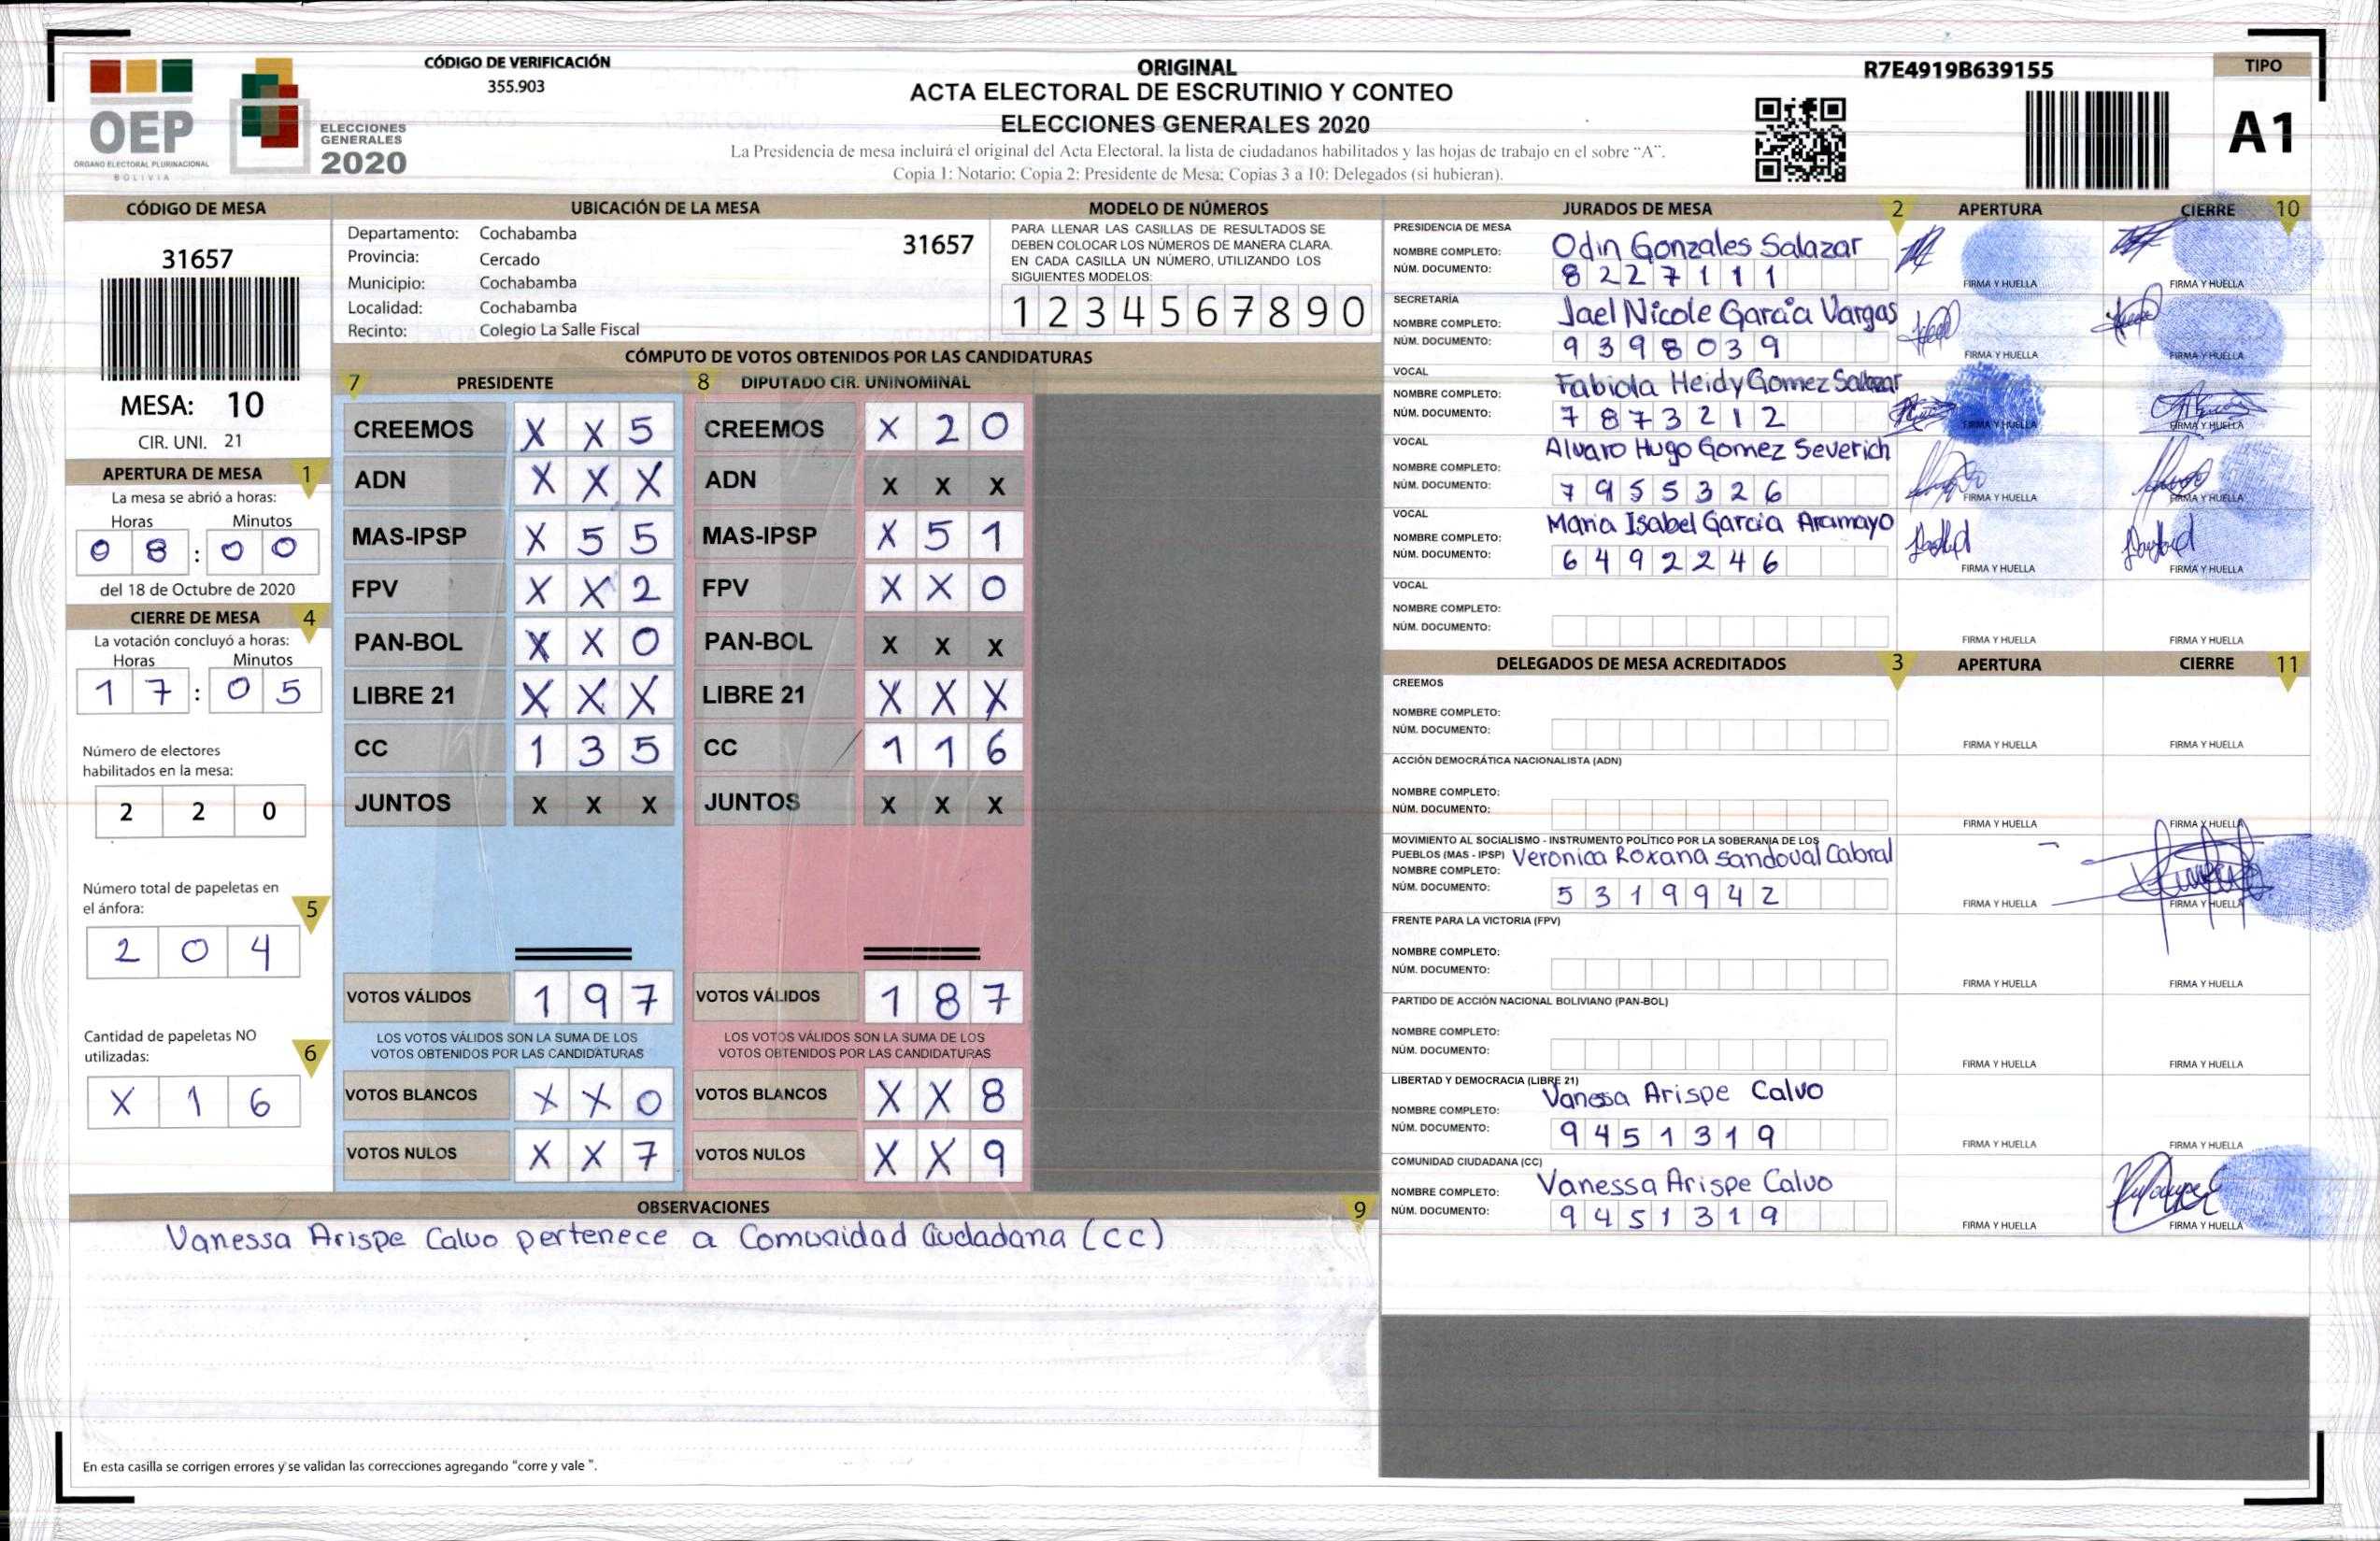 OEP
ÓRGANO ELECTORAL PLURINACIONAL
BOLIVIA
ELECCIONES
GENERALES
2020
CÓDIGO DE VERIFICACIÓN
355.903
ORIGINAL
ACTA ELECTORAL DE ESCRUTINIO Y CONTEO
ELECCIONES GENERALES 2020
La Presidencia de mesa incluirá el original del Acta Electoral, la lista de ciudadanos habilitados y las hojas de trabajo en el sobre “A”.
Copia 1: Notario; Copia 2: Presidente de Mesa; Copias 3 a 10: Delegados (si hubieran).
R7E4919B639155
TIPO
A1
CÓDIGO DE MESA
31657
MESA: 10
CIR. UNI. 21
APERTURA DE MESA 1
La mesa se abrió a horas:
Horas Minutos
0 8 : 0 0
del 18 de Octubre de 2020
CIERRE DE MESA 4
La votación concluyó a horas:
Horas Minutos
1 7 : 0 5
Número de electores
habilitados en la mesa:
2 2 0
Número total de papeletas en
el ánfora: 5
2 0 4
Cantidad de papeletas NO
utilizadas: 6
X 1 6
UBICACIÓN DE LA MESA
Departamento: Cochabamba
31657
Provincia: Cercado
Municipio: Cochabamba
Localidad: Cochabamba
Recinto: Colegio La Salle Fiscal
MODELO DE NÚMEROS
PARA LLENAR LAS CASILLAS DE RESULTADOS SE
DEBEN COLOCAR LOS NÚMEROS DE MANERA CLARA.
EN CADA CASILLA UN NÚMERO, UTILIZANDO LOS
SIGUIENTES MODELOS:
1 2 3 4 5 6 7 8 9 0
CÓMPUTO DE VOTOS OBTENIDOS POR LAS CANDIDATURAS
7 PRESIDENTE
CREEMOS X X 5
ADN X X X
MAS-IPSP X 5 5
FPV X X 2
PAN-BOL X X 0
LIBRE 21 X X X
CC 1 3 5
JUNTOS X X X
VOTOS VÁLIDOS 1 9 7
LOS VOTOS VÁLIDOS SON LA SUMA DE LOS
VOTOS OBTENIDOS POR LAS CANDIDATURAS
VOTOS BLANCOS X X 0
VOTOS NULOS X X 7
8 DIPUTADO CIR. UNINOMINAL
CREEMOS X 2 0
ADN X X X
MAS-IPSP X 5 1
FPV X X 0
PAN-BOL X X X
LIBRE 21 X X X
CC 1 1 6
JUNTOS X X X
VOTOS VÁLIDOS 1 8 7
LOS VOTOS VÁLIDOS SON LA SUMA DE LOS
VOTOS OBTENIDOS POR LAS CANDIDATURAS
VOTOS BLANCOS X X 8
VOTOS NULOS X X 9
OBSERVACIONES 9
Vanessa Arispe Calvo pertenece a Comunidad Ciudadana (CC)
En esta casilla se corrigen errores y se validan las correcciones agregando "corre y vale ".
JURADOS DE MESA 2 APERTURA CIERRE 10
PRESIDENCIA DE MESA
NOMBRE COMPLETO: Odin Gonzales Salazar
NÚM. DOCUMENTO: 8 2 2 7 1 1 1
FIRMA Y HUELLA FIRMA Y HUELLA
SECRETARÍA
NOMBRE COMPLETO: Jael Nicole García Vargas
NÚM. DOCUMENTO: 9 3 9 8 0 3 9
FIRMA Y HUELLA FIRMA Y HUELLA
VOCAL
NOMBRE COMPLETO: Fabiola Heidy Gomez Salazar
NÚM. DOCUMENTO: 7 8 7 3 2 1 2
FIRMA Y HUELLA FIRMA Y HUELLA
VOCAL
NOMBRE COMPLETO: Alvaro Hugo Gomez Severich
NÚM. DOCUMENTO: 7 9 5 5 3 2 6
FIRMA Y HUELLA FIRMA Y HUELLA
VOCAL
NOMBRE COMPLETO: Maria Isabel Garcia Aramayo
NÚM. DOCUMENTO: 6 4 9 2 2 4 6
FIRMA Y HUELLA FIRMA Y HUELLA
VOCAL
NOMBRE COMPLETO:
NÚM. DOCUMENTO:
FIRMA Y HUELLA FIRMA Y HUELLA
DELEGADOS DE MESA ACREDITADOS 3 APERTURA CIERRE 11
CREEMOS
NOMBRE COMPLETO:
NÚM. DOCUMENTO:
FIRMA Y HUELLA FIRMA Y HUELLA
ACCIÓN DEMOCRÁTICA NACIONALISTA (ADN)
NOMBRE COMPLETO:
NÚM. DOCUMENTO:
FIRMA Y HUELLA FIRMA Y HUELLA
MOVIMIENTO AL SOCIALISMO - INSTRUMENTO POLÍTICO POR LA SOBERANIA DE LOS
PUEBLOS (MAS - IPSP) Veronica Roxana Sandoval Cabral
NOMBRE COMPLETO:
NÚM. DOCUMENTO: 5 3 1 9 9 4 2
FIRMA Y HUELLA FIRMA Y HUELLA
FRENTE PARA LA VICTORIA (FPV)
NOMBRE COMPLETO:
NÚM. DOCUMENTO:
FIRMA Y HUELLA FIRMA Y HUELLA
PARTIDO DE ACCIÓN NACIONAL BOLIVIANO (PAN-BOL)
NOMBRE COMPLETO:
NÚM. DOCUMENTO:
FIRMA Y HUELLA FIRMA Y HUELLA
LIBERTAD Y DEMOCRACIA (LIBRE 21)
NOMBRE COMPLETO: Vanessa Arispe Calvo
NÚM. DOCUMENTO: 9 4 5 1 3 1 9
FIRMA Y HUELLA FIRMA Y HUELLA
COMUNIDAD CIUDADANA (CC)
NOMBRE COMPLETO: Vanessa Arispe Calvo
NÚM. DOCUMENTO: 9 4 5 1 3 1 9
FIRMA Y HUELLA FIRMA Y HUELLA